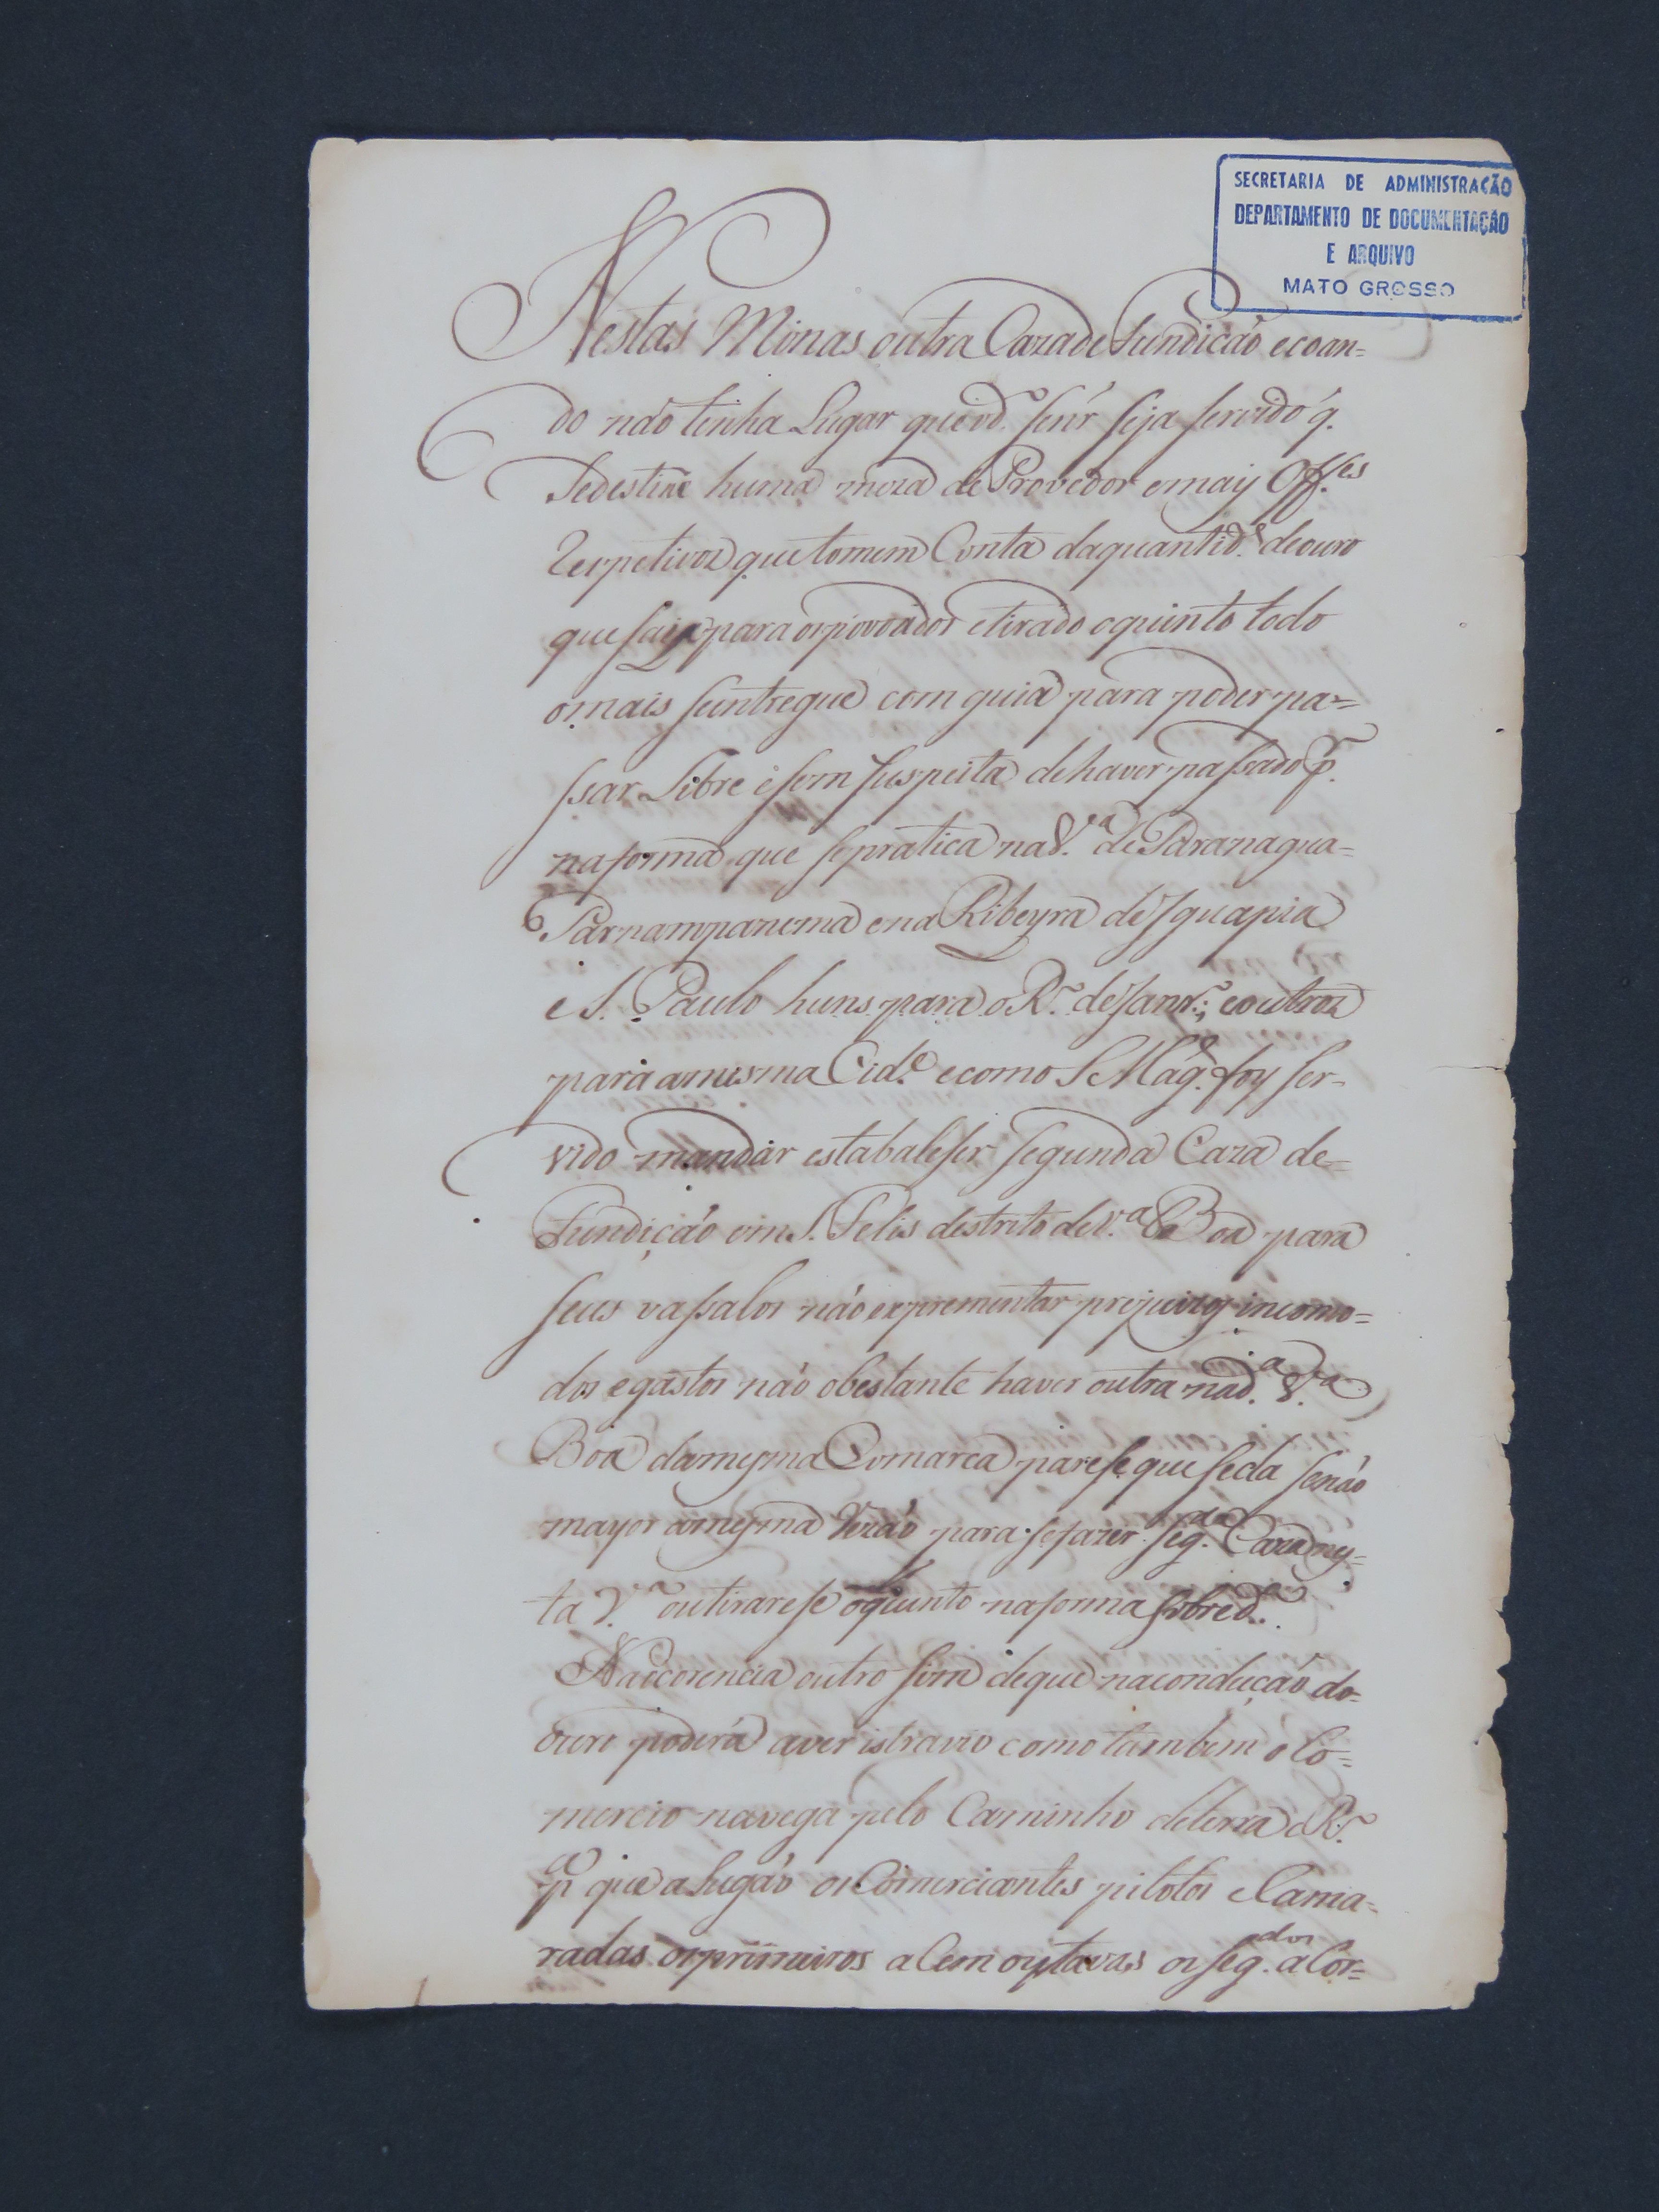 SECRETARIA DE ADMINISTRAÇÃO
DEPARTAMENTO DE DOCUMENTAÇÃO
E ARQUIVO
MATO GROSSO
Nestas Minas outra Caza de Fundicáo ecoan=
do não tenha Lugar que vd.ª senr̃ seja servido q̃.
Sedestine huma meza de Provedor emaiz Off.es
Respetivoz que tomem Conta daquantid.e deouro
que saya para ospovoados etirado oquinto todo
omais seintregue com guia para poder pa=
ssar Libre e sem suspeita dehaver passado p.
naforma que sepratica naV.ª de Paranagua=
Parnampanema ena Ribeyra de Iguapia
e S. Paulo huns para o R.º de Janr.º; eoutroz
para amesma Cid.e ecomo S Mag.e foy ser-
vido mandar estabaleser segunda Caza de=
Fundição em S. Felis destrito de V.ª Boa para
seus vassalos não expremintar prejuizoz incomo=
dos egastos não obestante haver outra nad.ª V.ª
Boa damesma Comarca parese que seda senão
mayor amesma Rezão para sefazer seg.da Caza nes=
ta V.ª outirarese oquinto naforma sobred.ª
Naocorencia outro sim deque nacondução do=
ouro poderá aver istravio como tambem o Co=
mercio navega pelo Caminho deterra e R.º
p.ª que alugão os Comerciantes pilotos eCama=
radas osprimeiros a Cem oytavas os seg.dos a Cor=